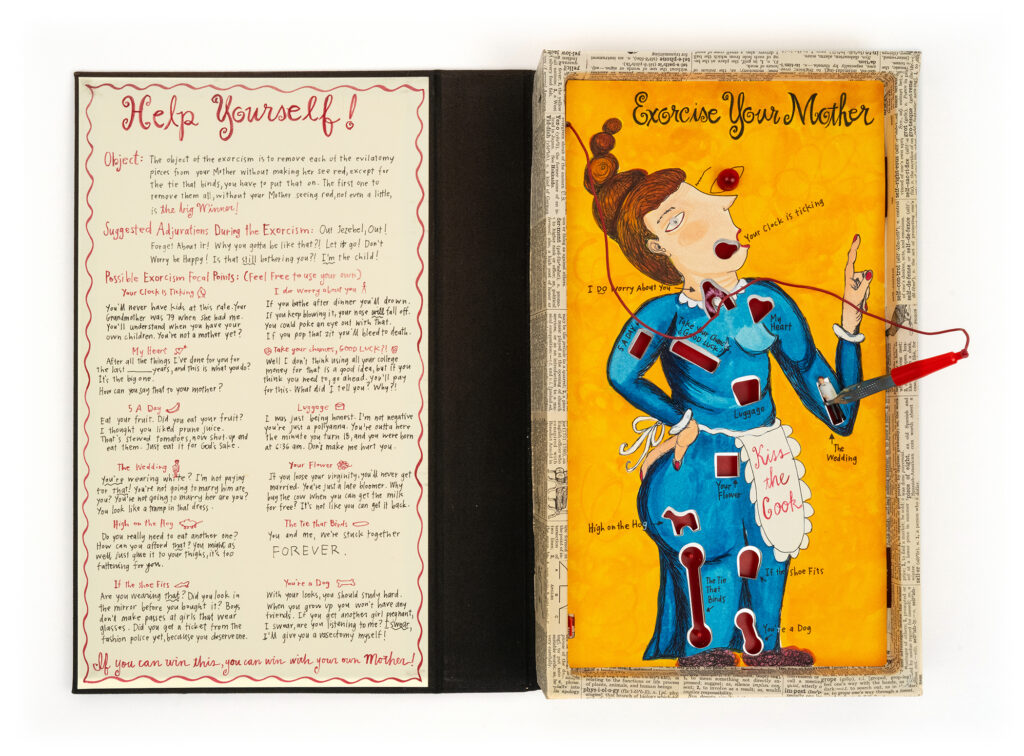 Help Yourself!
Object: The object of the exorcism is to remove each of the evilatomy
pieces from your Mother without making her see red, except for
the tie that binds, you have to put that on. The first one to
remove them all, without your Mother seeing red, not even a little,
is the big Winner!
Suggested Adjurations During the Exorcism: Out Jezebel, Out!
Forget About it! Why you gotta be like that?! Let it go! Don't
Worry be Happy! Is that still bothering you?! I'm the child!
Possible Exorcism Focal Points: (Feel Free to use your own)
Your Clock is Ticking
You'll never have kids at this rate. Your
Grandmother was 79 when she had me.
You'll understand when you have your
own children. You're not a mother yet?
I do Worry about you
If you bathe after dinner you'll drown.
If you keep blowing it, your nose will fall off.
You could poke an eye out with that.
If you pop that zit you'll bleed to death.
My Heart
After all the things I've done for you for
the last ____ years, and this is what you do?
It's the big one.
How can you say that to your mother?
Take your chances, GOOD LUCK?!
Well I don't think using all your college
money for that is a good idea, but if you
think you need to, go ahead, you'll pay
for this. What did I tell you? Why?!
5 A Day
Eat your fruit. Did you eat your fruit?
I thought you liked prune juice.
That's stewed tomatoes, now shut up and
eat them. Just eat it for God's sake.
Luggage
I was just being honest. I'm not negative
you're just a pollyanna. You're outta here
the minute you turn 18, and you were born
at 6:36 am. Don't make me hurt you.
The Wedding
You're wearing white? I'm not paying
for that! You're not going to marry him are
you? You're not going to marry her are you?
You look like a tramp in that dress.
Your Flower
If you loose your virginity, you'll never get
married. You're just a late bloomer. Why
buy the cow when you can get the milk
for free? It's not like you can get it back.
High on the Hog
Do you really need to eat another one?
How can you afford that? You might as
well just glue it to your thighs, it's too
fattening for you.
The Tie that Binds
You and me, we're stuck together
FOREVER.
If the Shoe Fits
Are you wearing that? Did you look in
the mirror before you bought it? Boys
don't make passes at girls that wear
glasses. Did you get a ticket from the
fashion police yet, because you deserve one.
You're a Dog
With your looks, you should study hard.
When you grow up you won't have any
friends. If you get another girl pregnant,
I swear, are you listening to me? I swear,
I'll give you a vasectomy myself!
If you can win this, you can win with your own Mother!
Exorcise Your Mother
Your Clock is ticking
I DO Worry About You
5 A DAY
Take your chances
GOOD LUCK?!
My
Heart
Luggage
The
Wedding
Your
Flower
Kiss
the
Cook
High on the Hog
The Tie
That
Binds
If the Shoe Fits
You're a Dog
phys·i·ol·o·gy